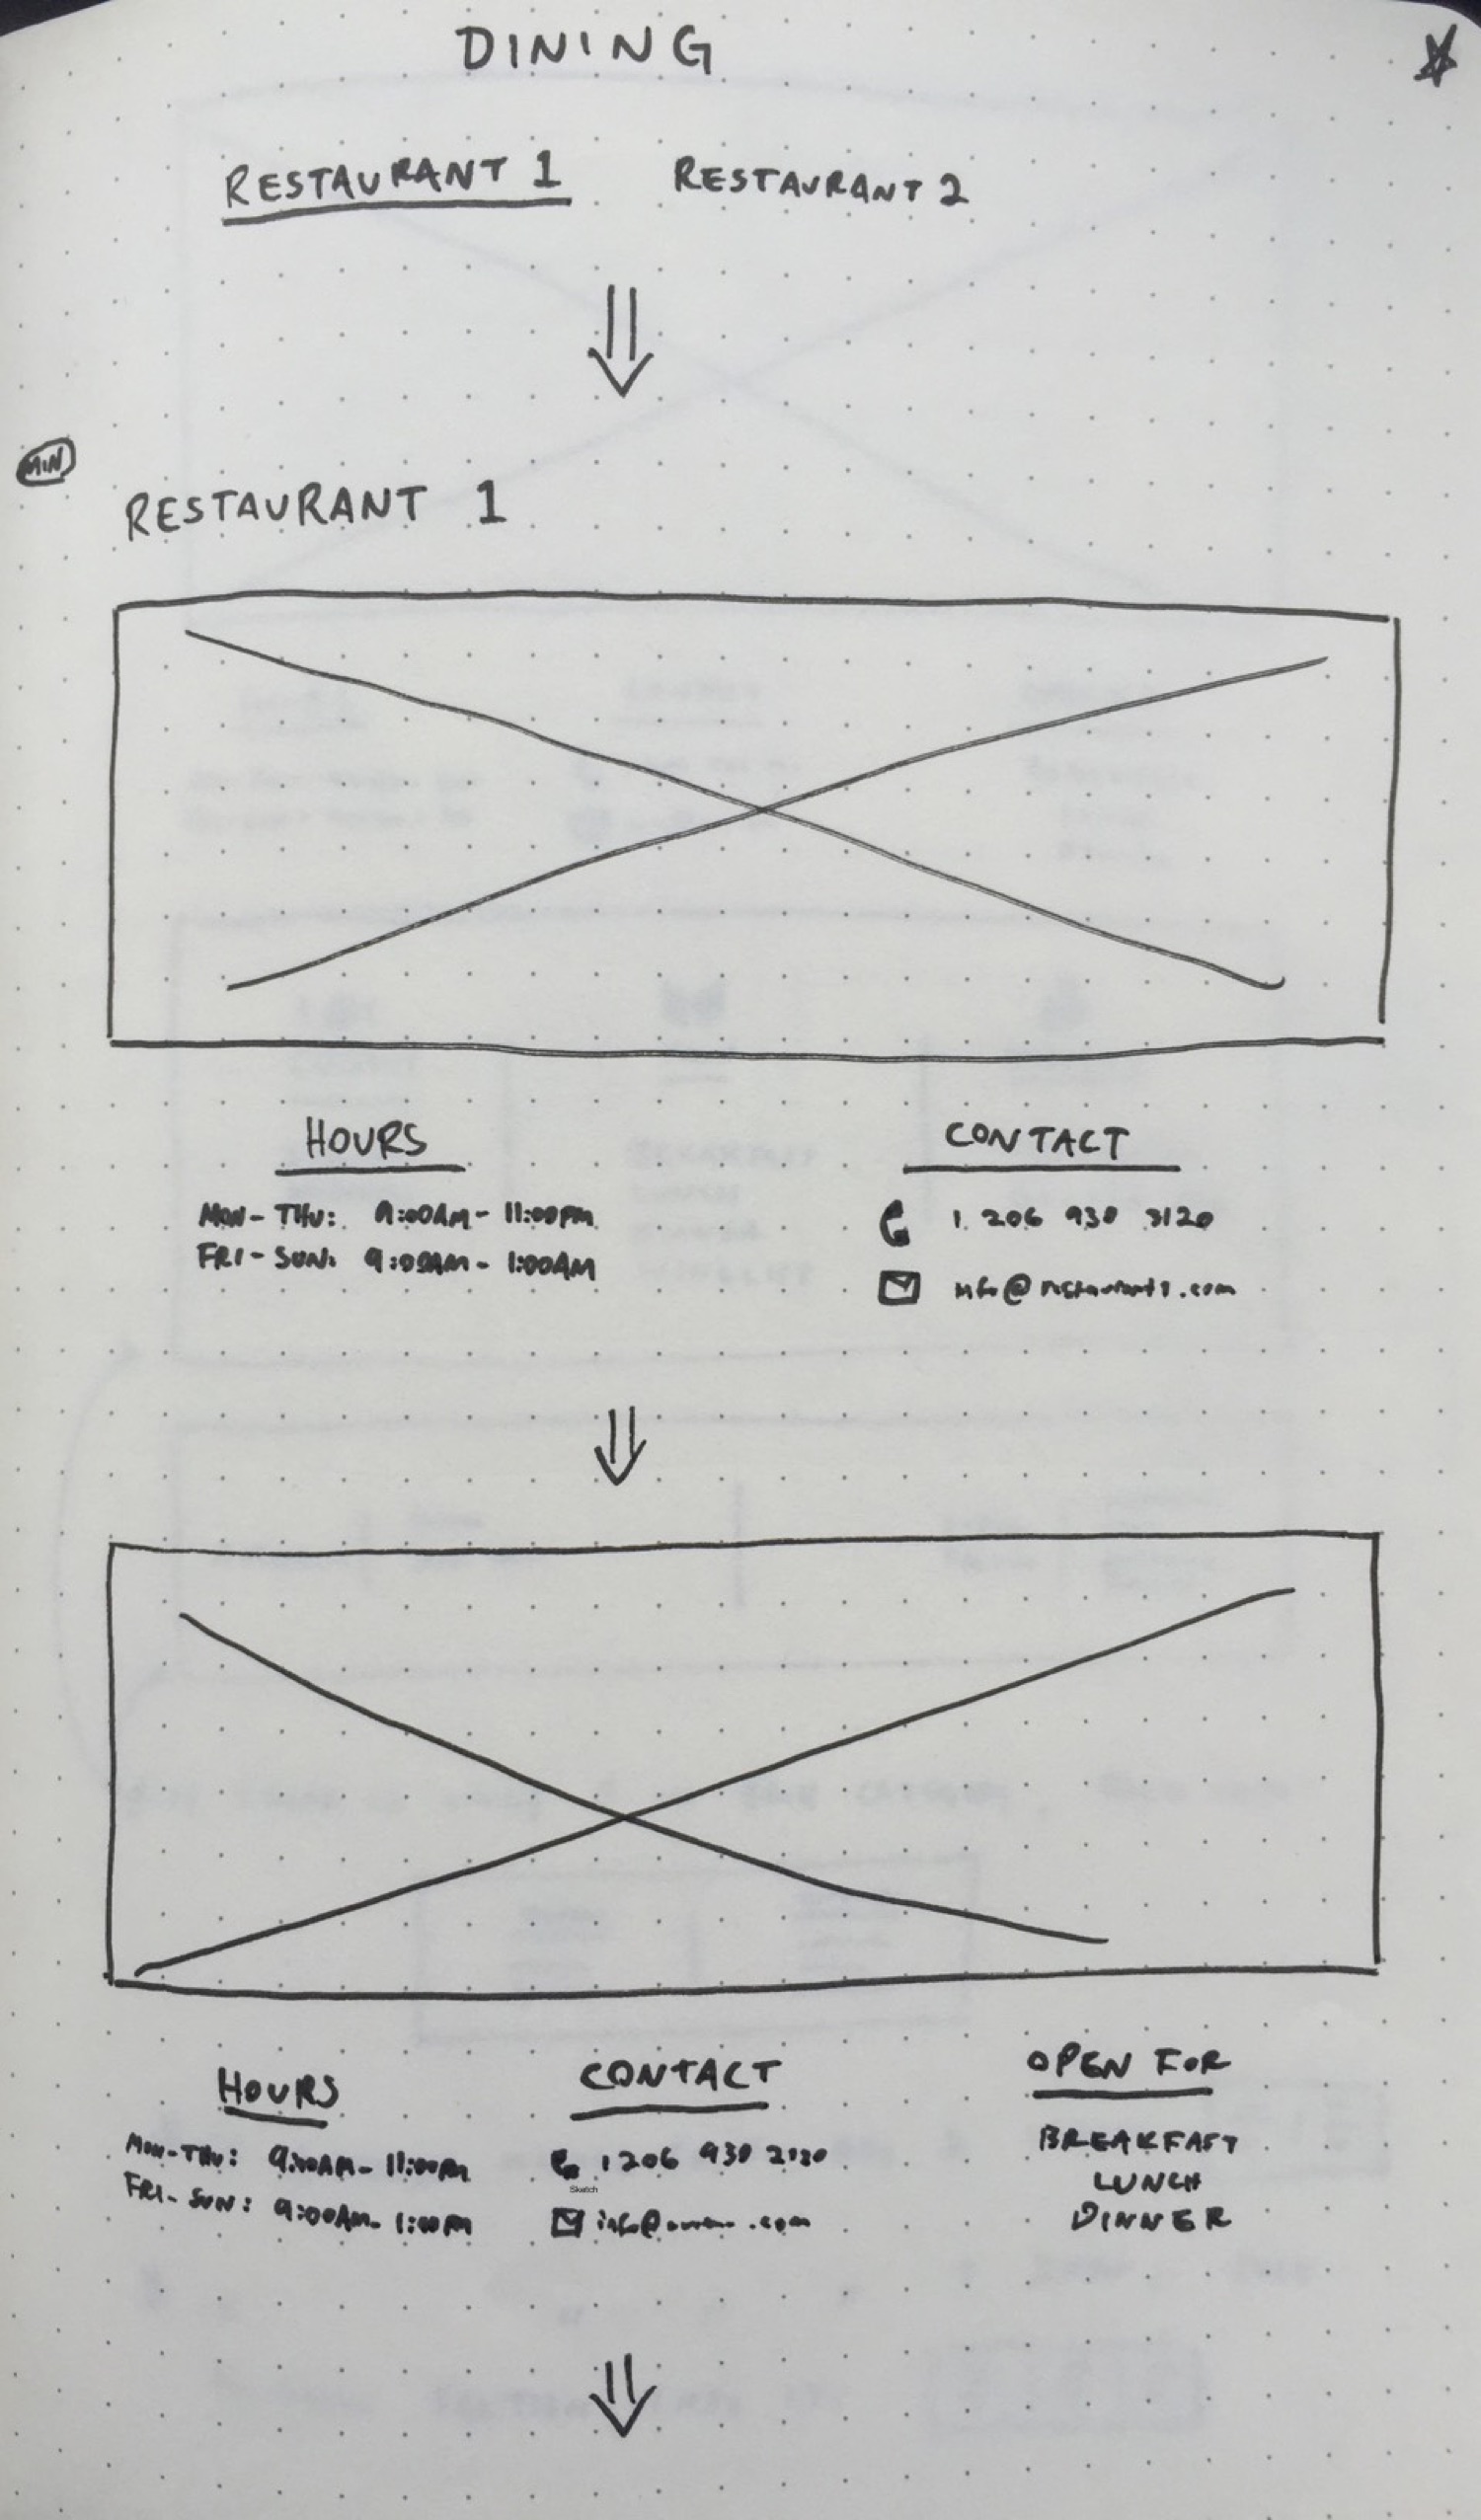 DINING
RESTAURANT 1 RESTAURANT 2
MIN
RESTAURANT 1
HOURS
MON-THU: 9:00AM - 11:00PM
FRI-SUN: 9:00AM - 1:00AM
CONTACT
1 206 930 3120
info@restaurant1.com
HOURS
MON-THU: 9:00AM - 11:00PM
FRI-SUN: 9:00AM - 1:00PM
CONTACT
1 206 930 2120
Sketch
OPEN FOR
BREAKFAST
LUNCH
DINNER